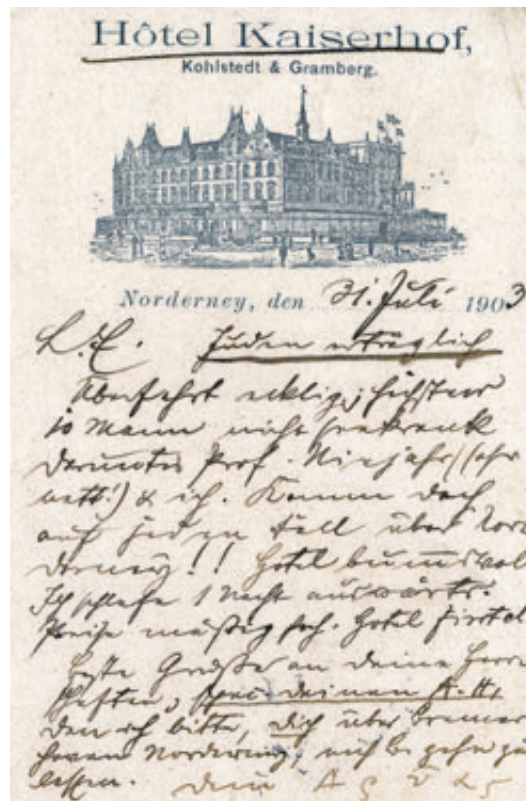 Hôtel Kaiserhof,
Kohlstedt & Gramberg.
Norderney, den 31. Juli 1903
L. E. Juden erträglich
Überfahrt ecklig, höchstens
10 Mann nicht seekrank
darunter Prof. Niejahr (sehr
nett!) & ich. Komm doch
auf jeden Fall über Nor
derney!! Hotel bumsvoll
Ich schlafe 1 Nacht auswärts.
Preise mäßig hoch. Hotel
Beste Grüße an deine Herr
schaften, deinen A. H.,
den ich bitte, dich über Bremer
haven Norderney, gehn zu
lassen. Dein